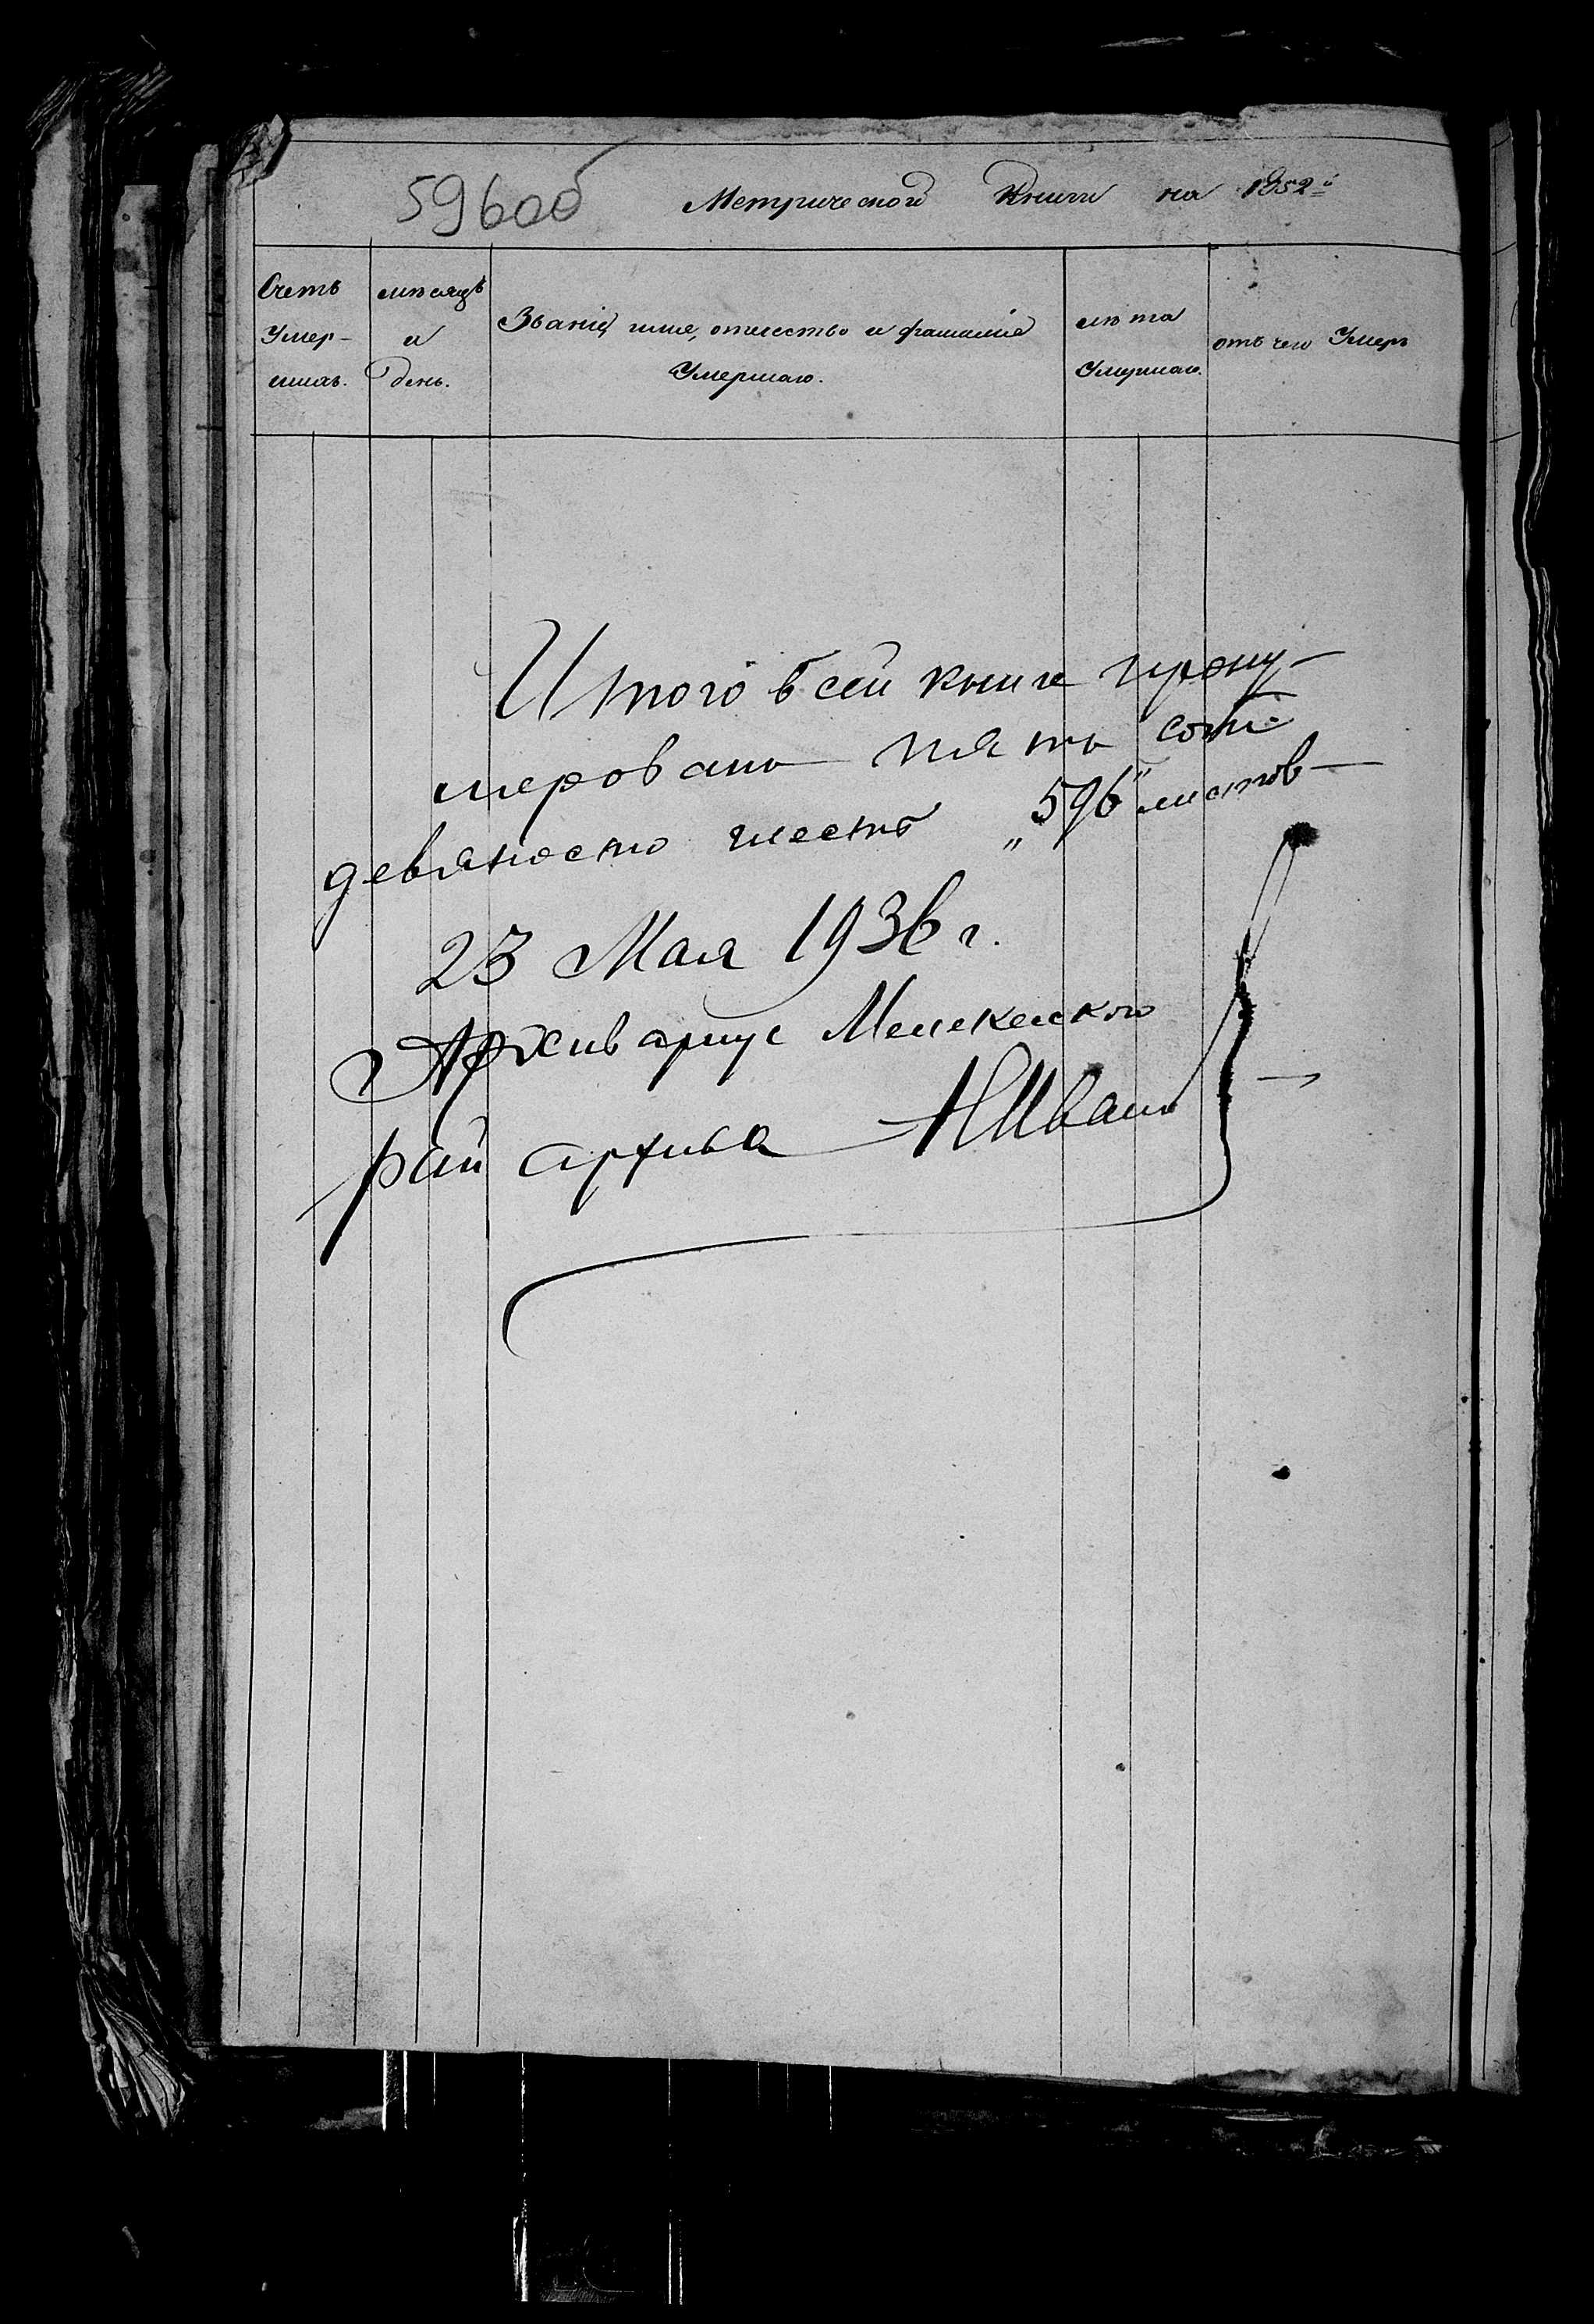 596об
Метрической Книги на 1852й
Счетъ Умер- шихъ.
мѣсяцъ и день.
Званіе, имя, отчество и фамилія
Умершаго.
лѣта Умершаго.
отъ чего Умеръ
Итого в сей книге прону-
меровано пять сот
девяносто шесть „596" листов
23 Мая 1936 г.
Архивариус Мелекеского
рай архива НИванов